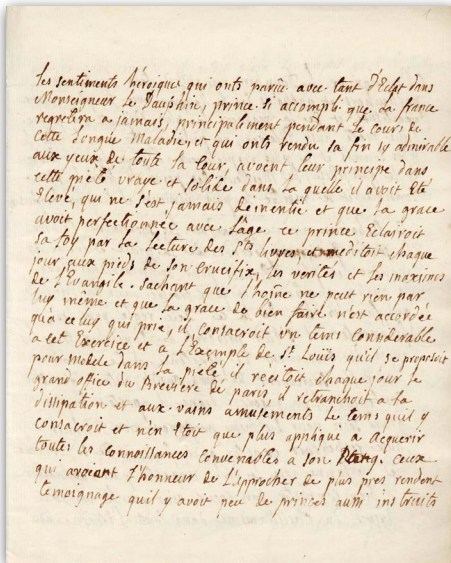 1
les sentiments héroique qui onts parüe avec tant d'Eclat dans
Monseigneur le Dauphin, prince si accompli que la france
regretera a jamais, principaliment pendant le cours de
cette longue Maladie, et qui onts rendu sa fin sy admirable
aux yeux de toute la Cour, avoient leur principe dans
cette pieté vraye et solide dans la quelle il avoit Eté
Elevé, qui ne s'est jamais dementie et que la grace
avoit perfectionnée avec l'age. ce prince Eclairoit
sa foy par la lecture des Sts livres et meditoit chaque
jour aux pieds de son crucifix, les verités et les maximes
de l'Evangile. Sachant que l'hoñe ne peut rien par
luy même et que la grace de bien faire n'est accordée
qu'a celuy qui prie, il consacroit un tems considerable
a cet Exercice et a l'Exemple de St Louis qu'il se proposoit
pour modele dans la pieté, il récitoit chaque jour le
grand office du Breviere de paris, il retranchoit a la
dissipation et aux vains amusements le tems quil y
consacroit et n'en Etoit que plus appliqué a acquerir
toutes les connoissances convenables a son Rang. Ceux
qui avoient l'honneur de l'approcher de plus pres rendent
temoignage quil y avoit peu de princes aussi instruits